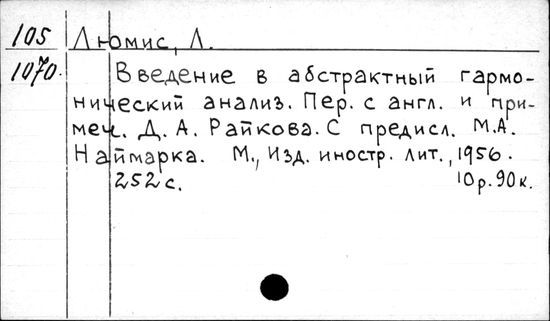 105 Люмис, Л.
1070. Введение в абстрактный гармо-
нический анализ. Пер. с англ. и при-
меч. Д. А. Райкова. С предисл. М.А.
Наймарка. М., Изд. иностр. лит., 1956.
252 с. 10 р. 90 к.